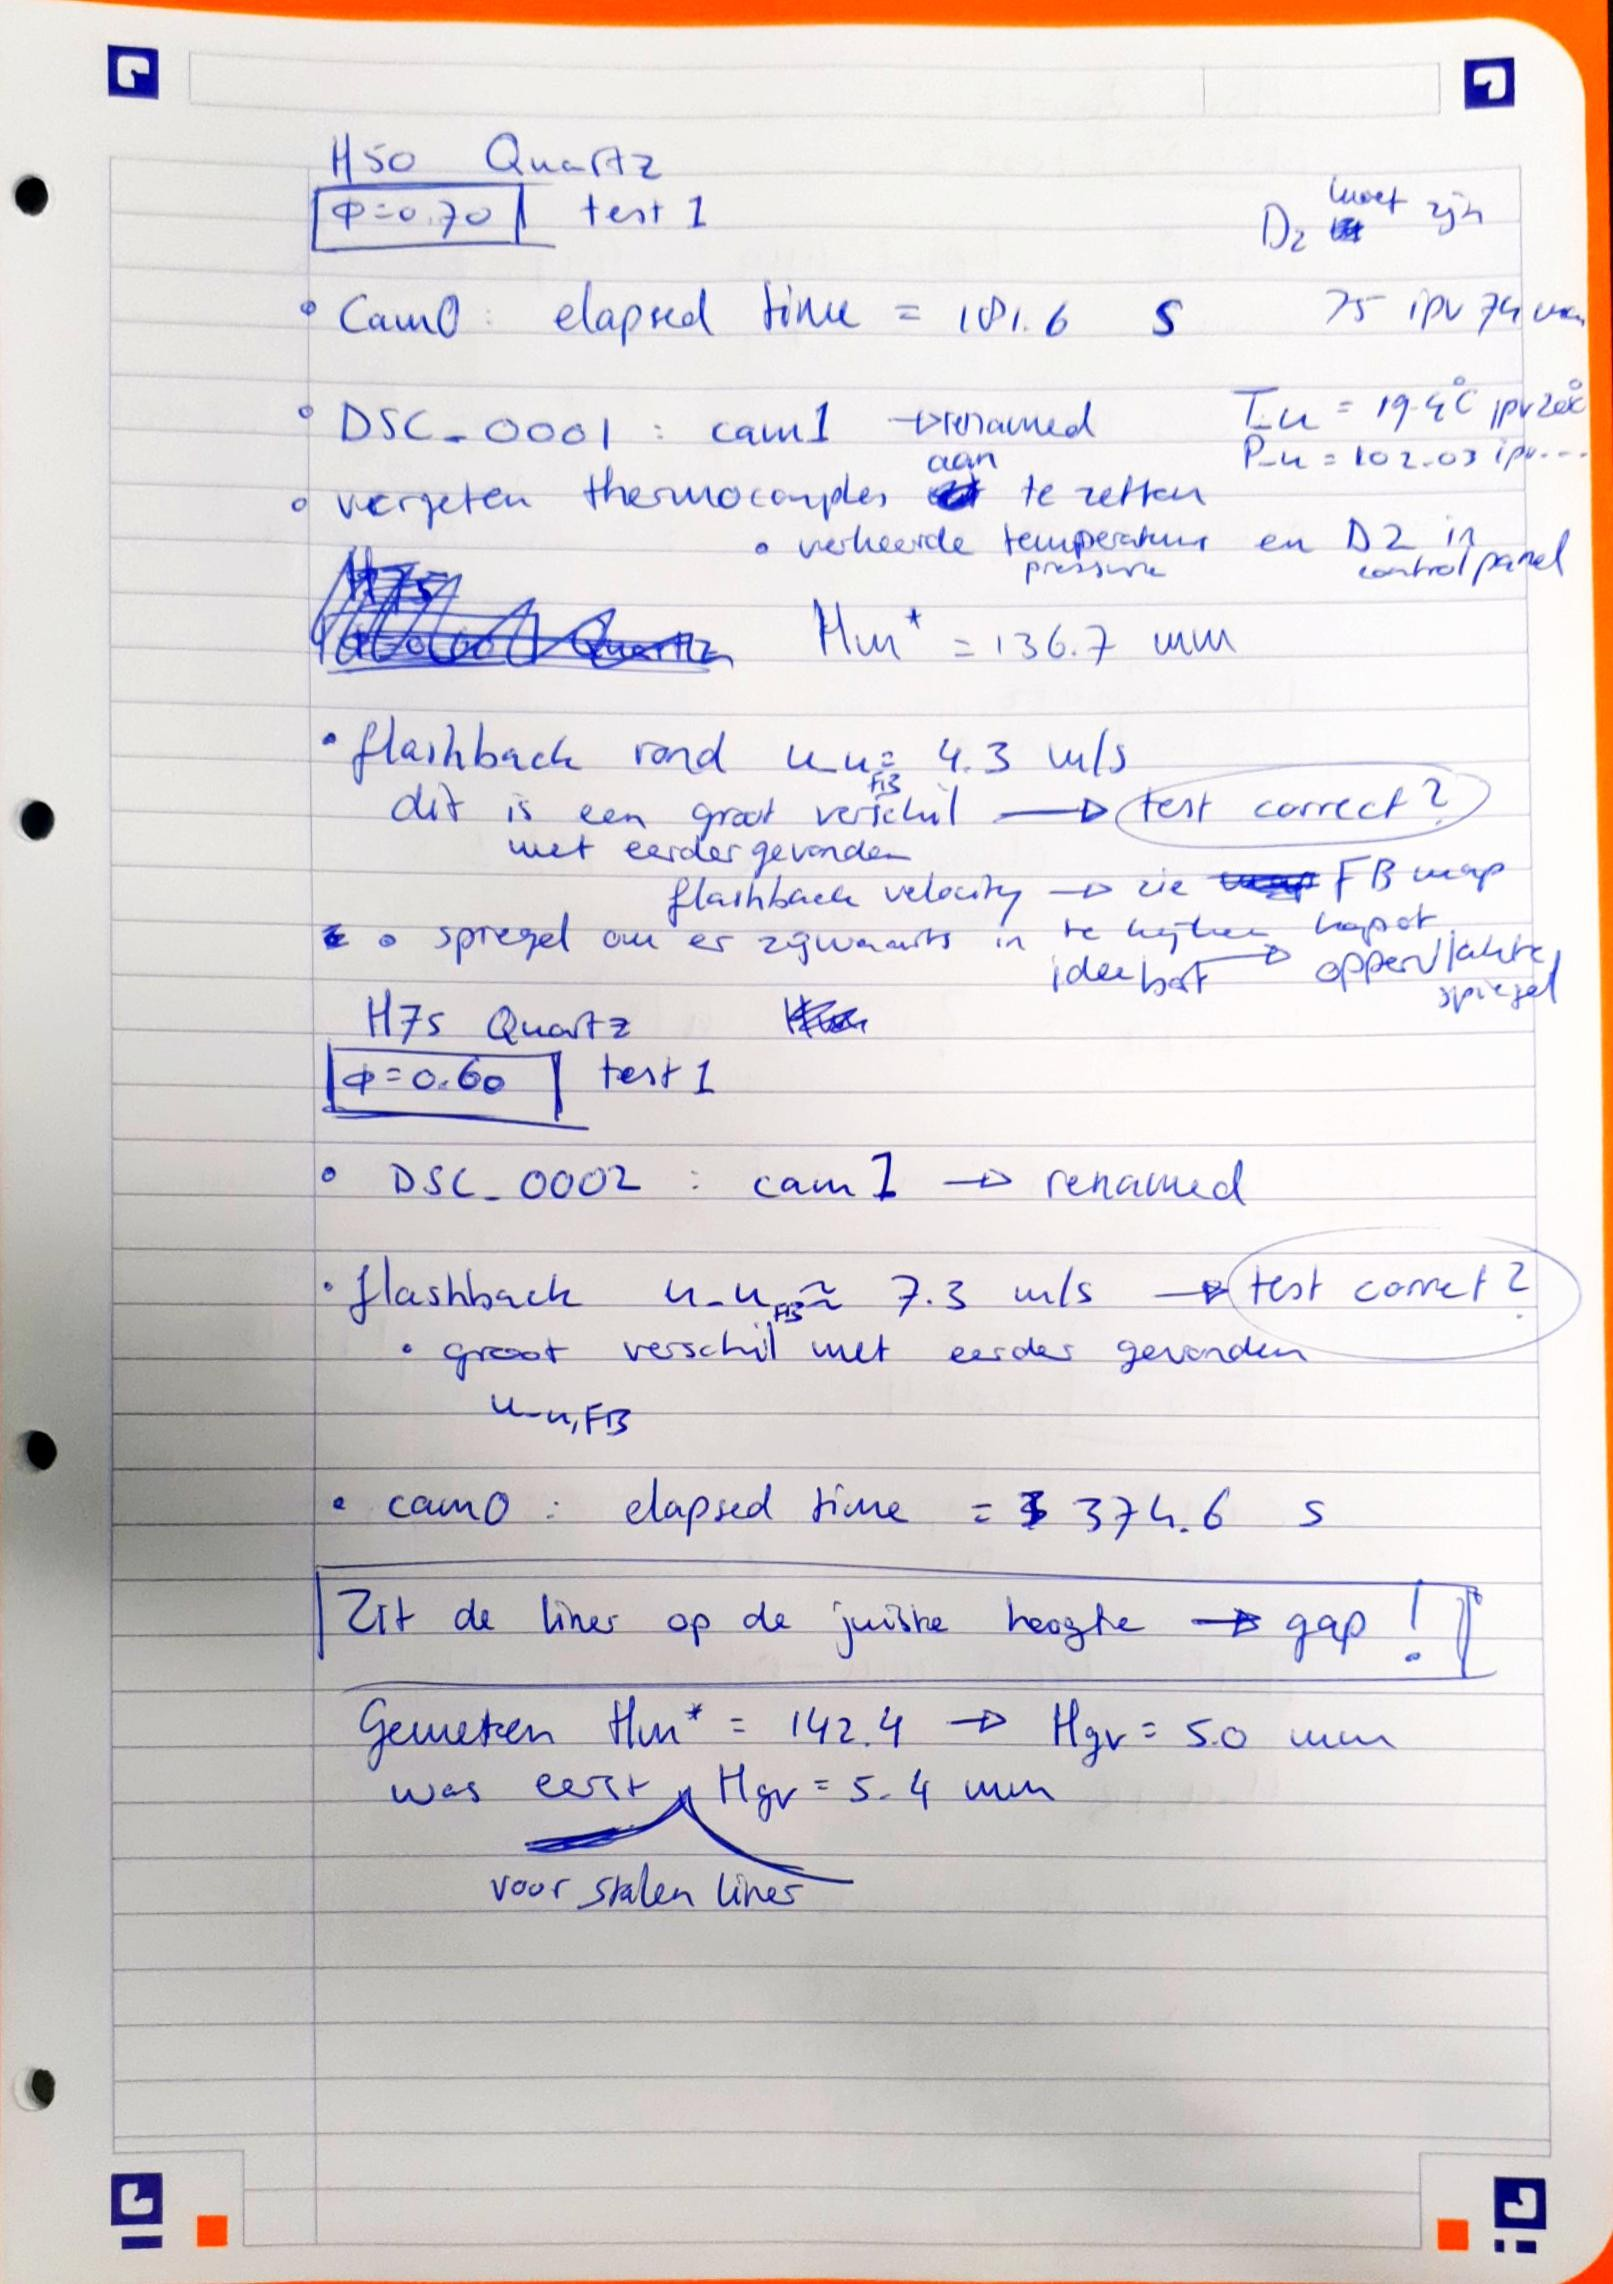 H50 Quartz
φ=0.70 test 1
D2 moet zijn
75 ipv 74 mm
• Cam0: elapsed time = 181.6 s
• DSC_0001 : cam1 → renamed
T_u = 19.4°C ipv 20°C
P_u = 102.03 ipv...
• vergeten thermocouples aan te zetten
• verkeerde temperatuur en D2 in
pressure control panel
Hm* = 136.7 mm
• flashback rond u_u FB = 4.3 m/s
dit is een groot verschil → test correct?
met eerder gevonden
flashback velocity → zie FB map
• spiegel om er zijwaarts in te kijken kapot
→ oppervlakte
spiegel
H75 Quartz
φ=0.60 test 1
• DSC_0002 : cam1 → renamed
• flashback u_u FB ≈ 7.3 m/s → test correct?
• groot verschil met eerder gevonden
u_u,FB
• cam0 : elapsed time = 374.6 s
Zit de liner op de juiste hoogte → gap!
Gemeten Hm* = 142.4 → Hgv = 5.0 mm
was eerst Hgv = 5.4 mm
voor stalen liner